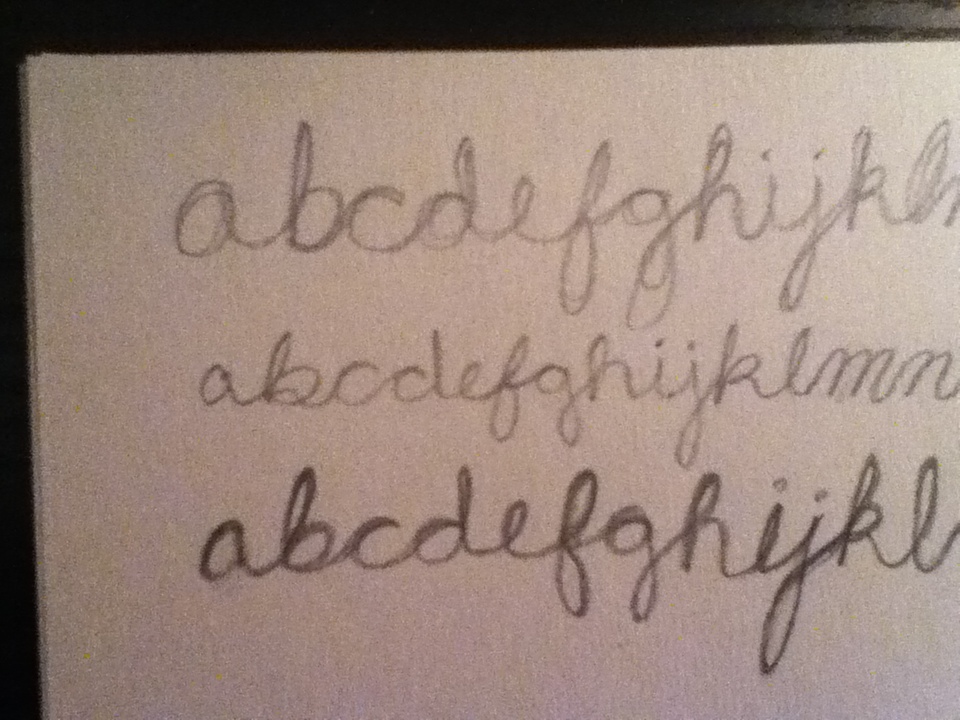 abcdefghijkl
abcdefghijklmn
abcdefghijkl